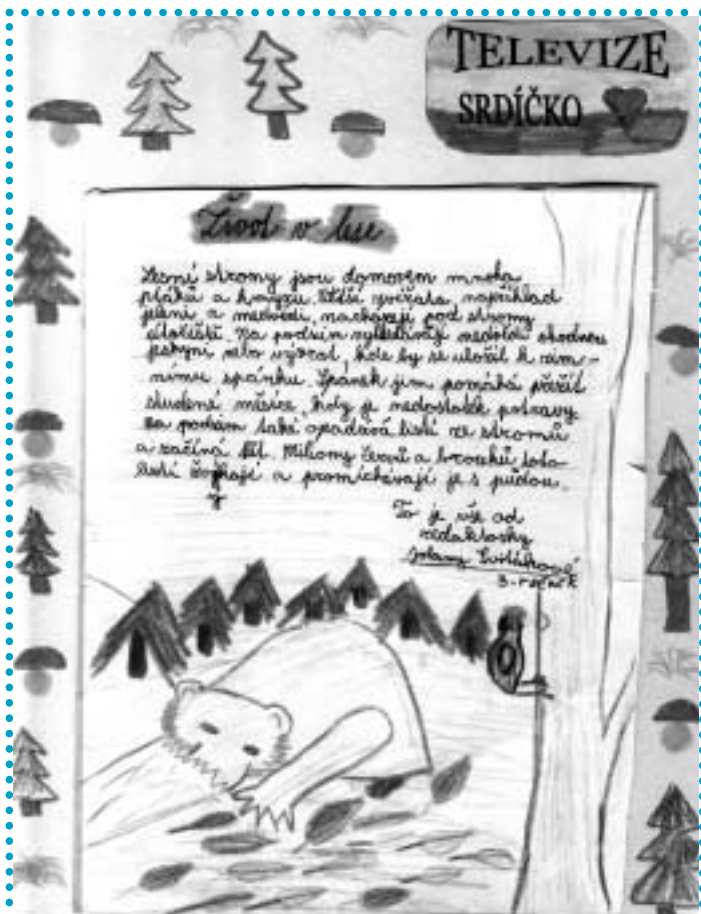 TELEVIZE
SRDÍČKO
Život v lese
Lesní stromy jsou domovem mnoha
ptáků a hmyzu. Větší zvířata, například
jeleni a medvědi, nacházejí pod stromy
útočiště. Na podzim vyhledávají medvědi vhodnou
jeskyni nebo výkrat, kde by se uložil k zim-
nímu spánku. Spánek jim pomáhá přežít
studené měsíce, kdy je nedostatek potravy.
Na podzim také opadává listí ze stromů
a začíná tlít. Miliony červů a broučků toto
listí žvýkají a promíchávají je s půdou.
To je vše od
redaktorky
Jolany
3. ročník